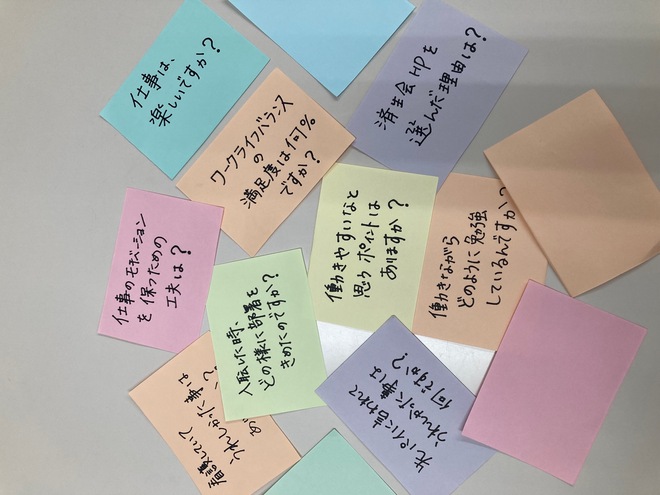 仕事は、
楽しいですか?
ワークライフバランス
の
満足度は何%
ですか?
済生会HPを
選んだ理由は?
仕事のモチベーション
を保っための
工夫は?
入職した時、
どの様に部署を
きめたのですか?
働きやすいなと
思うポイントは
ありますか?
働きながら
どのように勉強
しているんですか?
先パイに言われて
うれしかった事は
何ですか?
看護していて
うれしかった事は